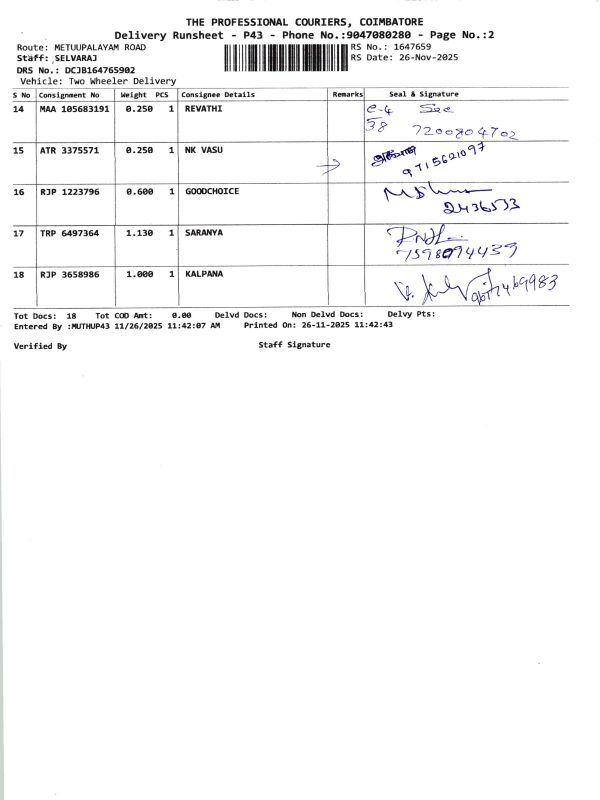 THE PROFESSIONAL COURIERS, COIMBATORE
Delivery Runsheet - P43 - Phone No.:9047080280 - Page No.:2
Route: METUUPALAYAM ROAD RS No.: 1647659
Staff: SELVARAJ RS Date: 26-Nov-2025
DRS No.: DCJB164765902
Vehicle: Two Wheeler Delivery
S No Consignment No Weight PCS Consignee Details Remarks Seal & Signature
14 MAA 105683191 0.250 1 REVATHI e-4 Sec
58 7200804702
15 ATR 3375571 0.250 1 NK VASU
9715621097
16 RJP 1223796 0.600 1 GOODCHOICE
2436533
17 TRP 6497364 1.130 1 SARANYA
7598094439
18 RJP 3658986 1.000 1 KALPANA
Tot Docs: 18 Tot COD Amt: 0.00 Delvd Docs: Non Delvd Docs: Delvy Pts:
Entered By :MUTHUP43 11/26/2025 11:42:07 AM Printed On: 26-11-2025 11:42:43
Verified By Staff Signature